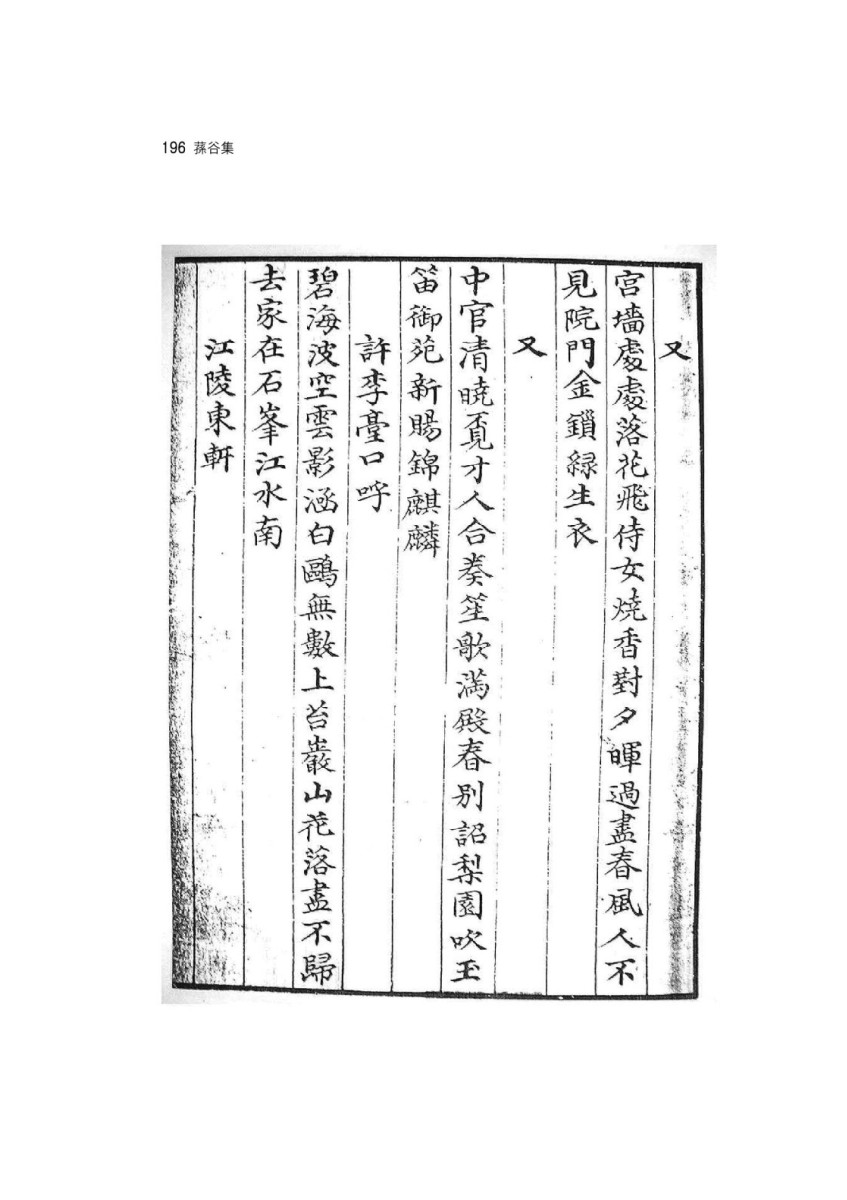 196 蓀谷集
又
宮墻處處落花飛侍女燒香對夕暉過盡春風人不
見院門金鎖綠生衣
又
中官清曉覔才人合奏笙歌滿殿春別詔梨園吹玉
笛御苑新賜錦麒麟
許李臺口呼
碧海波空雲影涵白鷗無數上苔巖山花落盡不歸
去家在石峯江水南
江陵東軒